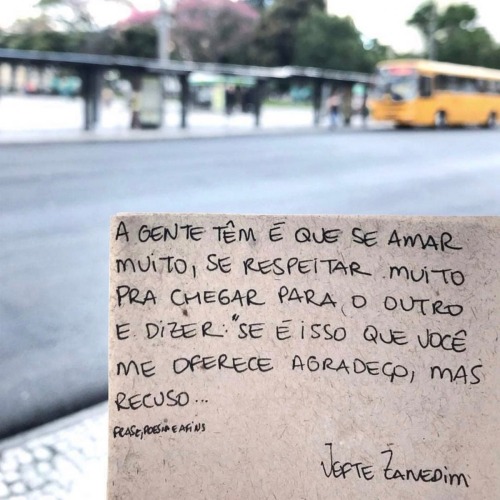 A GENTE TÊM É QUE SE AMAR
MUITO, SE RESPEITAR MUITO
PRA CHEGAR PARA O OUTRO
E DIZER: "SE É ISSO QUE VOCÊ
ME OFERECE AGRADEÇO, MAS
RECUSO...
FRASE, POESIA E AFINS
JEFTE ZANEDIM